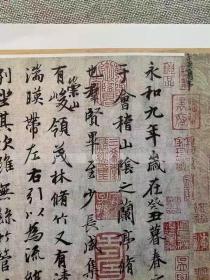 永和九年歲在癸丑暮春
于會稽山陰之蘭亭脩
也羣賢畢至少長咸集
有崇山峻領茂林脩竹又有清
湍暎帶左右引以為流
列坐其次雖無絲竹管